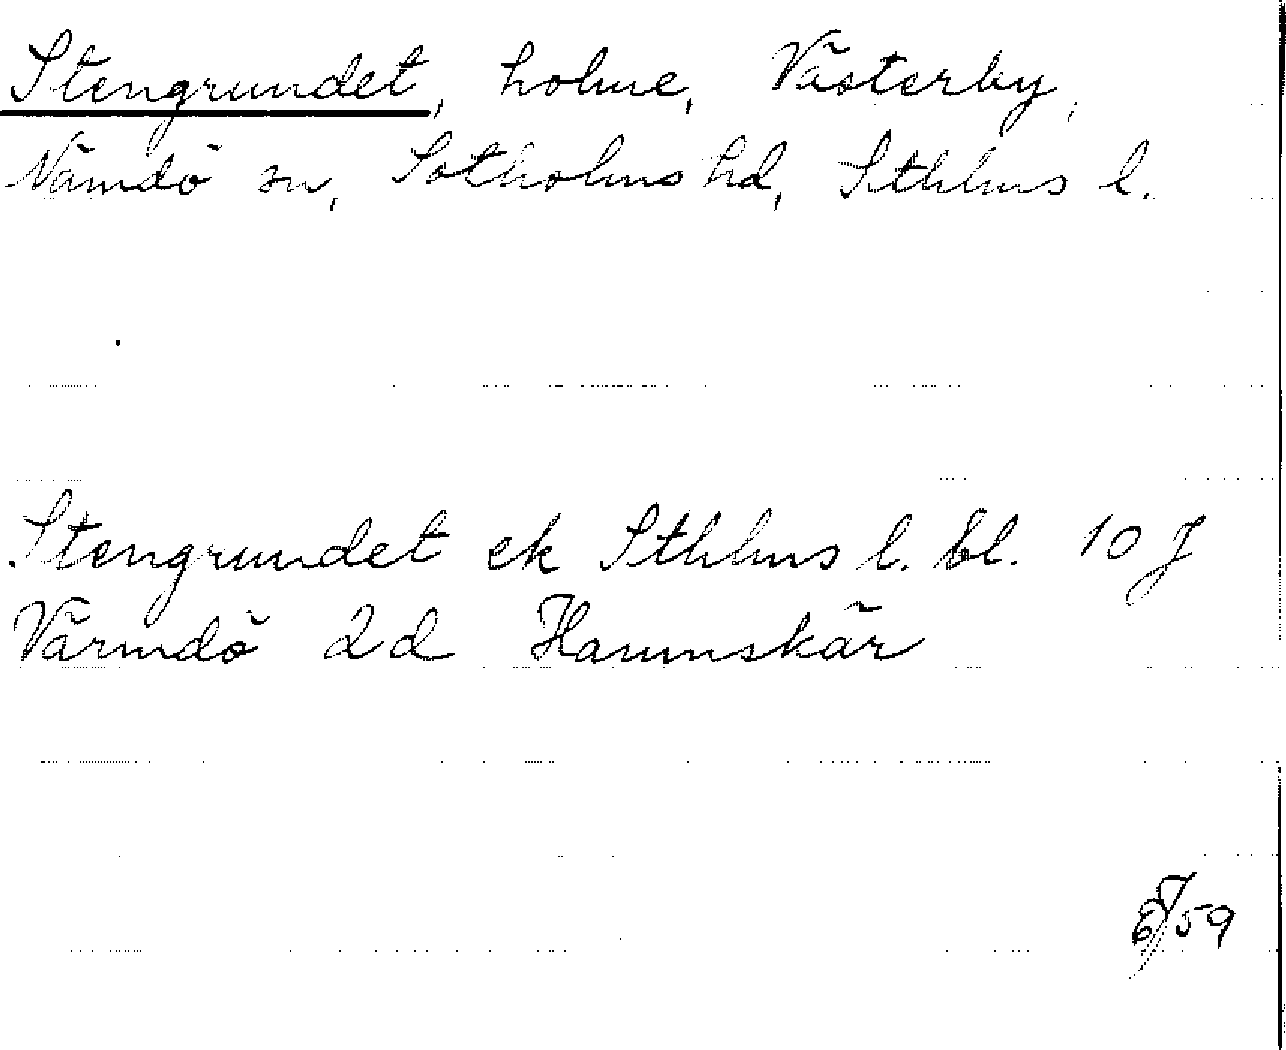 Stengrundet, holme, Västerby,
Nämdö sn, Sotholms hd, Sthlms l.
Stengrundet ek Sthlms l. bl. 10 J
Värmdö 2d Hamnskär
59